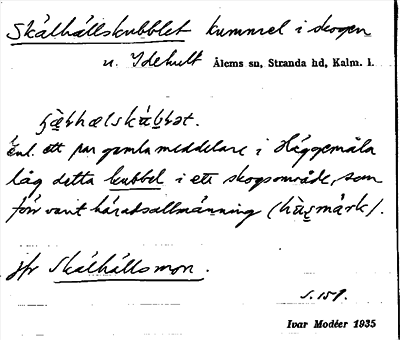 Skålhållskubblet kummel i skogen
n. Idehult Ålems sn, Stranda hd, Kalm. l.
Enl. ett par gamla meddelare i Häggemåla
låg detta kubbel i ett skogsområde, som
förr varit häradsallmänning (
jfr Skålhållsmon.
s. 159.
Ivar Modéer 1935